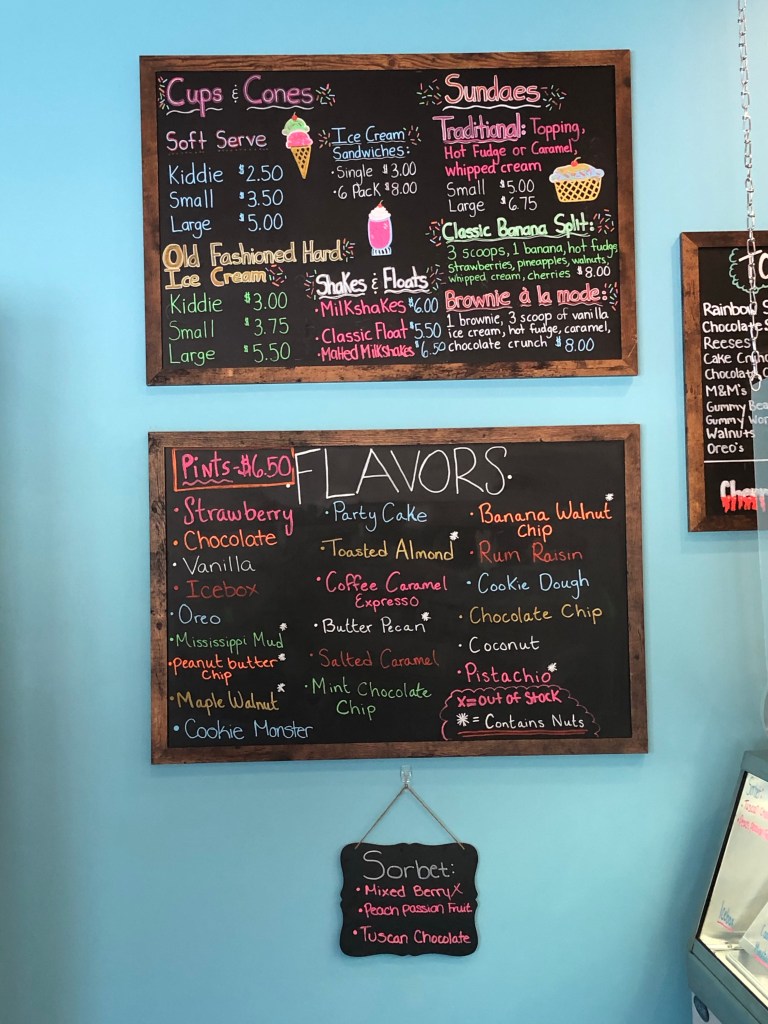 Cups & Cones
Soft Serve
Kiddie $2.50
Small $3.50
Large $5.00
Old Fashioned Hard
Ice Cream
Kiddie $3.00
Small $3.75
Large $5.50
Ice Cream
Sandwiches:
• Single $3.00
• 6 Pack $8.00
Shakes & Floats
• Milkshakes $6.00
• Classic Float $5.50
• Malted Milkshakes $6.50
Sundaes
Traditional: Topping,
Hot Fudge or Caramel,
whipped cream
Small $5.00
Large $6.75
Classic Banana Split:
3 scoops, 1 banana, hot fudge
strawberries, pineapples, walnuts,
whipped cream, cherries $8.00
Brownie à la mode:
1 brownie, 3 scoop of vanilla
ice cream, hot fudge, caramel,
chocolate crunch $8.00
Pints-$6.50
FLAVORS
• Strawberry
• Chocolate
• Vanilla
• Icebox
• Oreo
• Mississippi Mud*
• peanut butter*
chip
• Maple Walnut*
• Cookie Monster
• Party Cake
• Toasted Almond*
• Coffee Caramel
Expresso
• Butter Pecan*
• Salted Caramel
• Mint Chocolate
Chip
• Banana Walnut*
Chip
• Rum Raisin
• Cookie Dough
• Chocolate Chip
• Coconut
• Pistachio*
X=out of stock
* = Contains Nuts
Sorbet:
• Mixed Berry X
• Peach Passion Fruit
• Tuscan Chocolate
Rainbow
Chocolate
Reeses
Cake
M&M's
Gummy
Gummy
Walnuts
Oreo's